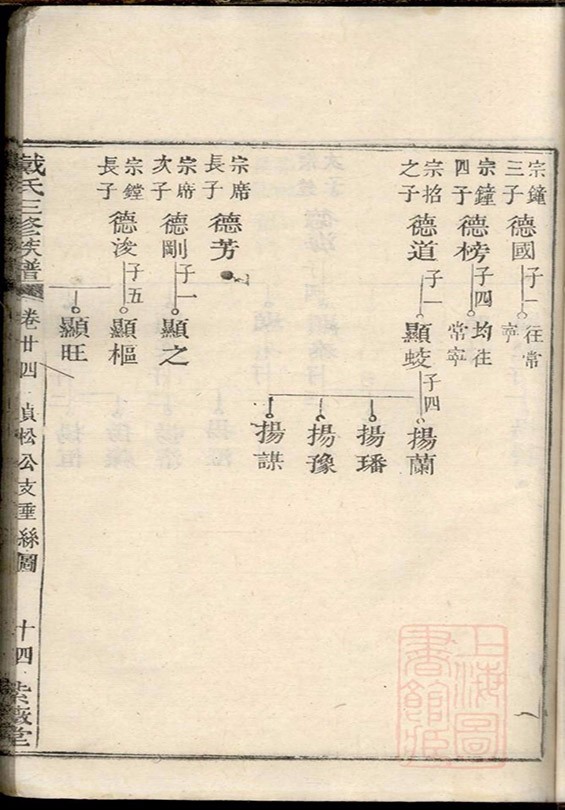 宗鐘三子 德國 子一 在常寧
宗鐘四子 德榜 子四 均在常寧
宗招之子 德道 子一 顯蛟 子四 揚蘭
揚璠
揚豫
揚謀
宗席長子 德芳
宗席次子 德剛 子一 顯之
宗鏜長子 德浚 子五 顯樞
顯旺
戴氏三修族譜 卷廿四 貞松公支垂絲圖 十四 紫薇堂
上海圖書館藏